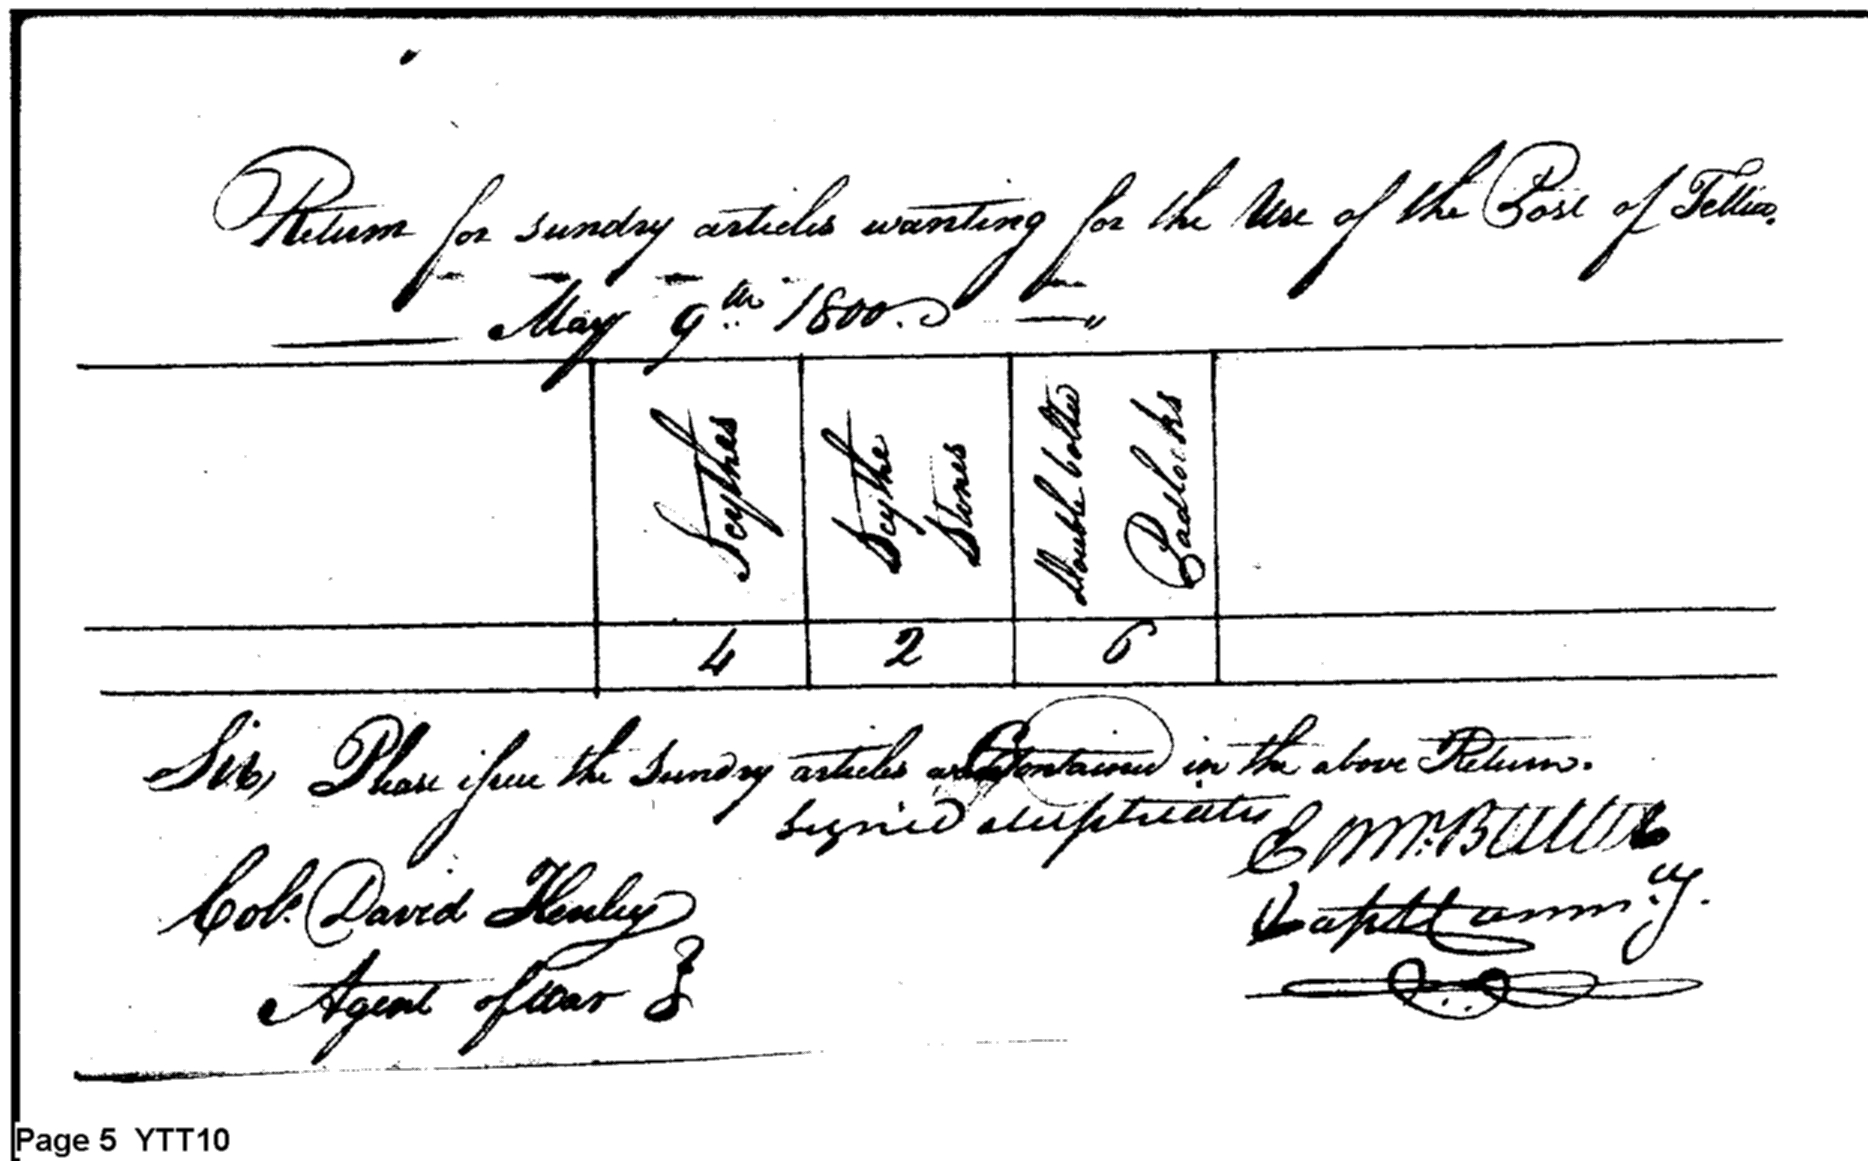 Return for sundry articles wanting for the Use of the Post of Tellico.
May 9th 1800.
Scythes
Scythe Stones
Double bolted Padlocks
4 2 6
Sir, Please issue the Sundry articles Contained in the above Return.
Signed duplicates
E
Col. David Henley
Capt Comm.y.
Agent of War
Page 5 YTT10